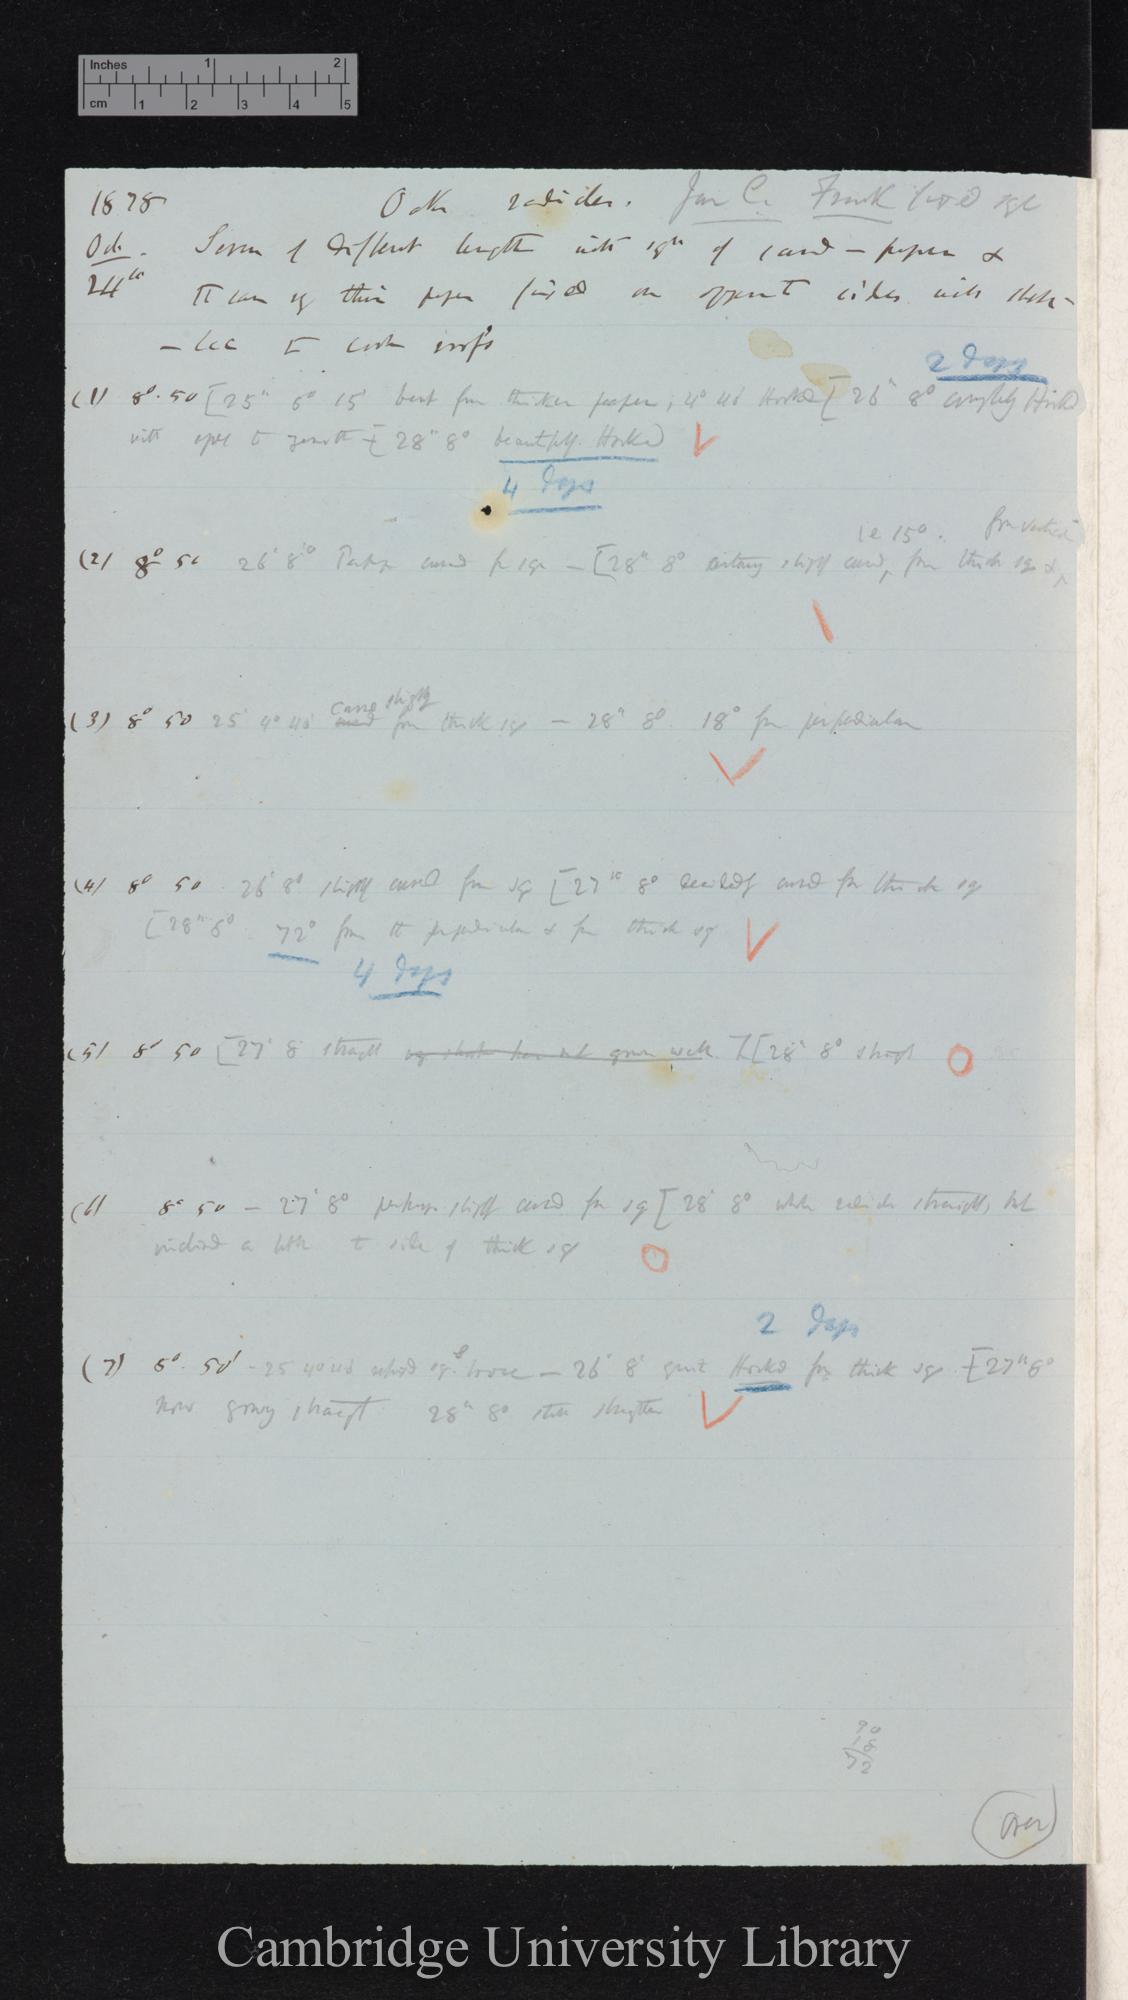 Inches 1 2
cm 1 2 3 4 5
1878 Oak radicles. Frank fixed sqs
Oct. Seven of different length with sqrs of card-paper &
24th the same of thin paper fixed on opposite sides with shel-
-lac to cork
2 days
(1) 8° 50 [25th 6° 15' bent from thicker paper; 4° 40 Hooked [26th 8° completely Hooked
with apex to zenith [28th 8° beautifully Hooked
4 days
ie 15°. from vertical
(2) 8° 50 26' 8° Perhaps curved fr sqr — [28th 8° certainly slightly curved, from thick sq &
curved slightly
(3) 8° 50 25' 4° 40' from thick sq — 28th 8° 18° from perpendicular
(4) 8° 50 26' 8° slightly curved from sq [27th 8° decidedly curved from thick sq
[28th 8° 72° from the perpendicular & from thick sq
4 days
(5) 8° 50 [27' 8 straight not grown well] [28th 8° straight
(6) 8° 50 — 27' 8° perhaps slightly curved from sq [28' 8° whole radicle straight, but
inclined a little to side of thick sq
2 days
(7) 8° 50' - 25 4° 40' sq. loose — 26' 8' quite Hooked from thick sqr [27th 8°
now growing straight 28th 8° still straighter
90
18
72
over
Cambridge University Library